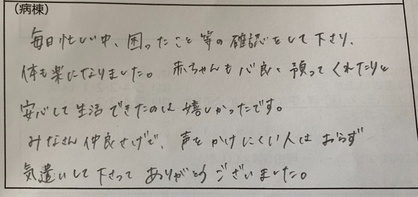 (病棟)
毎日忙しい中、困ったこと等の確認をして下さり、
体も楽になりました。赤ちゃんも心良く預ってくれたりと
安心して生活できたのは嬉しかったです。
みなさん仲良さげで、声をかけにくい人はおらず
気遣いして下さって ありがとうございました。